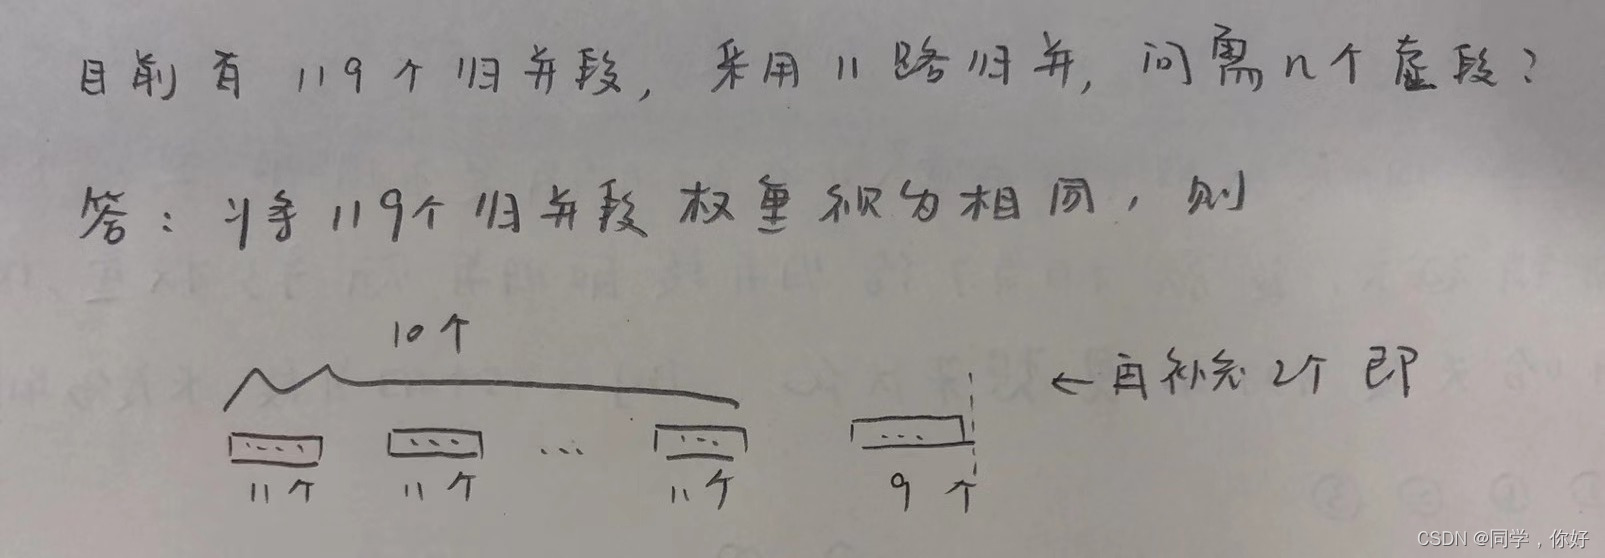 目前有119个归并段，采用11路归并，问需n个虚段？
答：将119个归并段权重视为相同，则
10个
←再补充2个即
...
11个 11个 11个 9个
CSDN @同学，你好